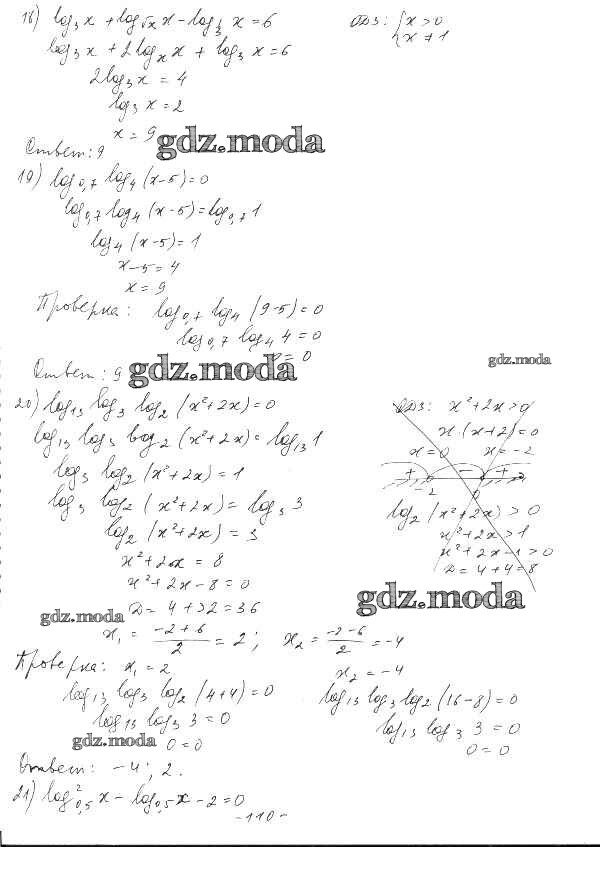 18) log₃ x + log_{√x} x − log_{1/3} x = 6
ОДЗ: { x > 0
x ≠ 1
log₃ x + 2 log_x x + log₃ x = 6
2 log₃ x = 4
log₃ x = 2
x = 9
Ответ: 9
gdz.moda
19) log₀,₇ log₄ (x−5) = 0
log₀,₇ log₄ (x−5) = log₀,₇ 1
log₄ (x−5) = 1
x−5 = 4
x = 9
Проверка: log₀,₇ log₄ (9−5) = 0
log₀,₇ log₄ 4 = 0
= 0
gdz.moda
Ответ: 9
gdz.moda
20) log₁₃ log₃ log₂ (x²+2x) = 0
ОДЗ: x²+2x > 0
log₁₃ log₃ log₂ (x²+2x) = log₁₃ 1
x·(x+2) = 0
x = 0 x = −2
log₃ log₂ (x²+2x) = 1
+ − +
−2 0
log₃ log₂ (x²+2x) = log₃ 3
log₂ (x²+2x) > 0
log₂ (x²+2x) = 3
x²+2x > 1
x²+2x = 8
x²+2x−1 > 0
x²+2x−8 = 0
D = 4+4 = 8
D = 4+32 = 36
gdz.moda
gdz.moda
x₁ = (−2+6)/2 = 2; x₂ = (−2−6)/2 = −4
Проверка: x₁ = 2
x₂ = −4
log₁₃ log₃ log₂ (4+4) = 0
log₁₃ log₃ log₂ (16−8) = 0
log₁₃ log₃ 3 = 0
log₁₃ log₃ 3 = 0
gdz.moda
0 = 0
0 = 0
Ответ: −4; 2.
21) log²₀,₅ x − log₀,₅ x − 2 = 0
−110−